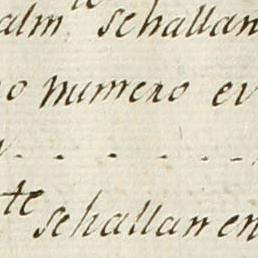 alm.te se hallan
o numero ev
te se hallan en